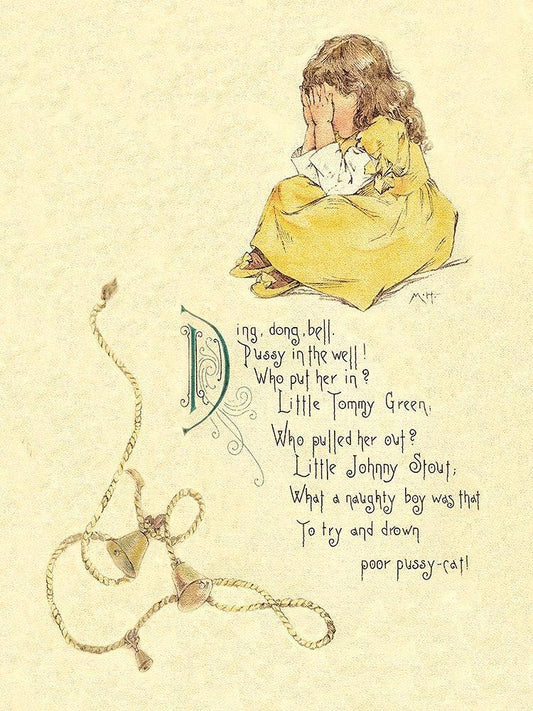 M·H·
Ding, dong, bell.
Pussy in the well!
Who put her in?
Little Tommy Green,
Who pulled her out?
Little Johnny Stout;
What a naughty boy was that
To try and drown
poor pussy-cat!